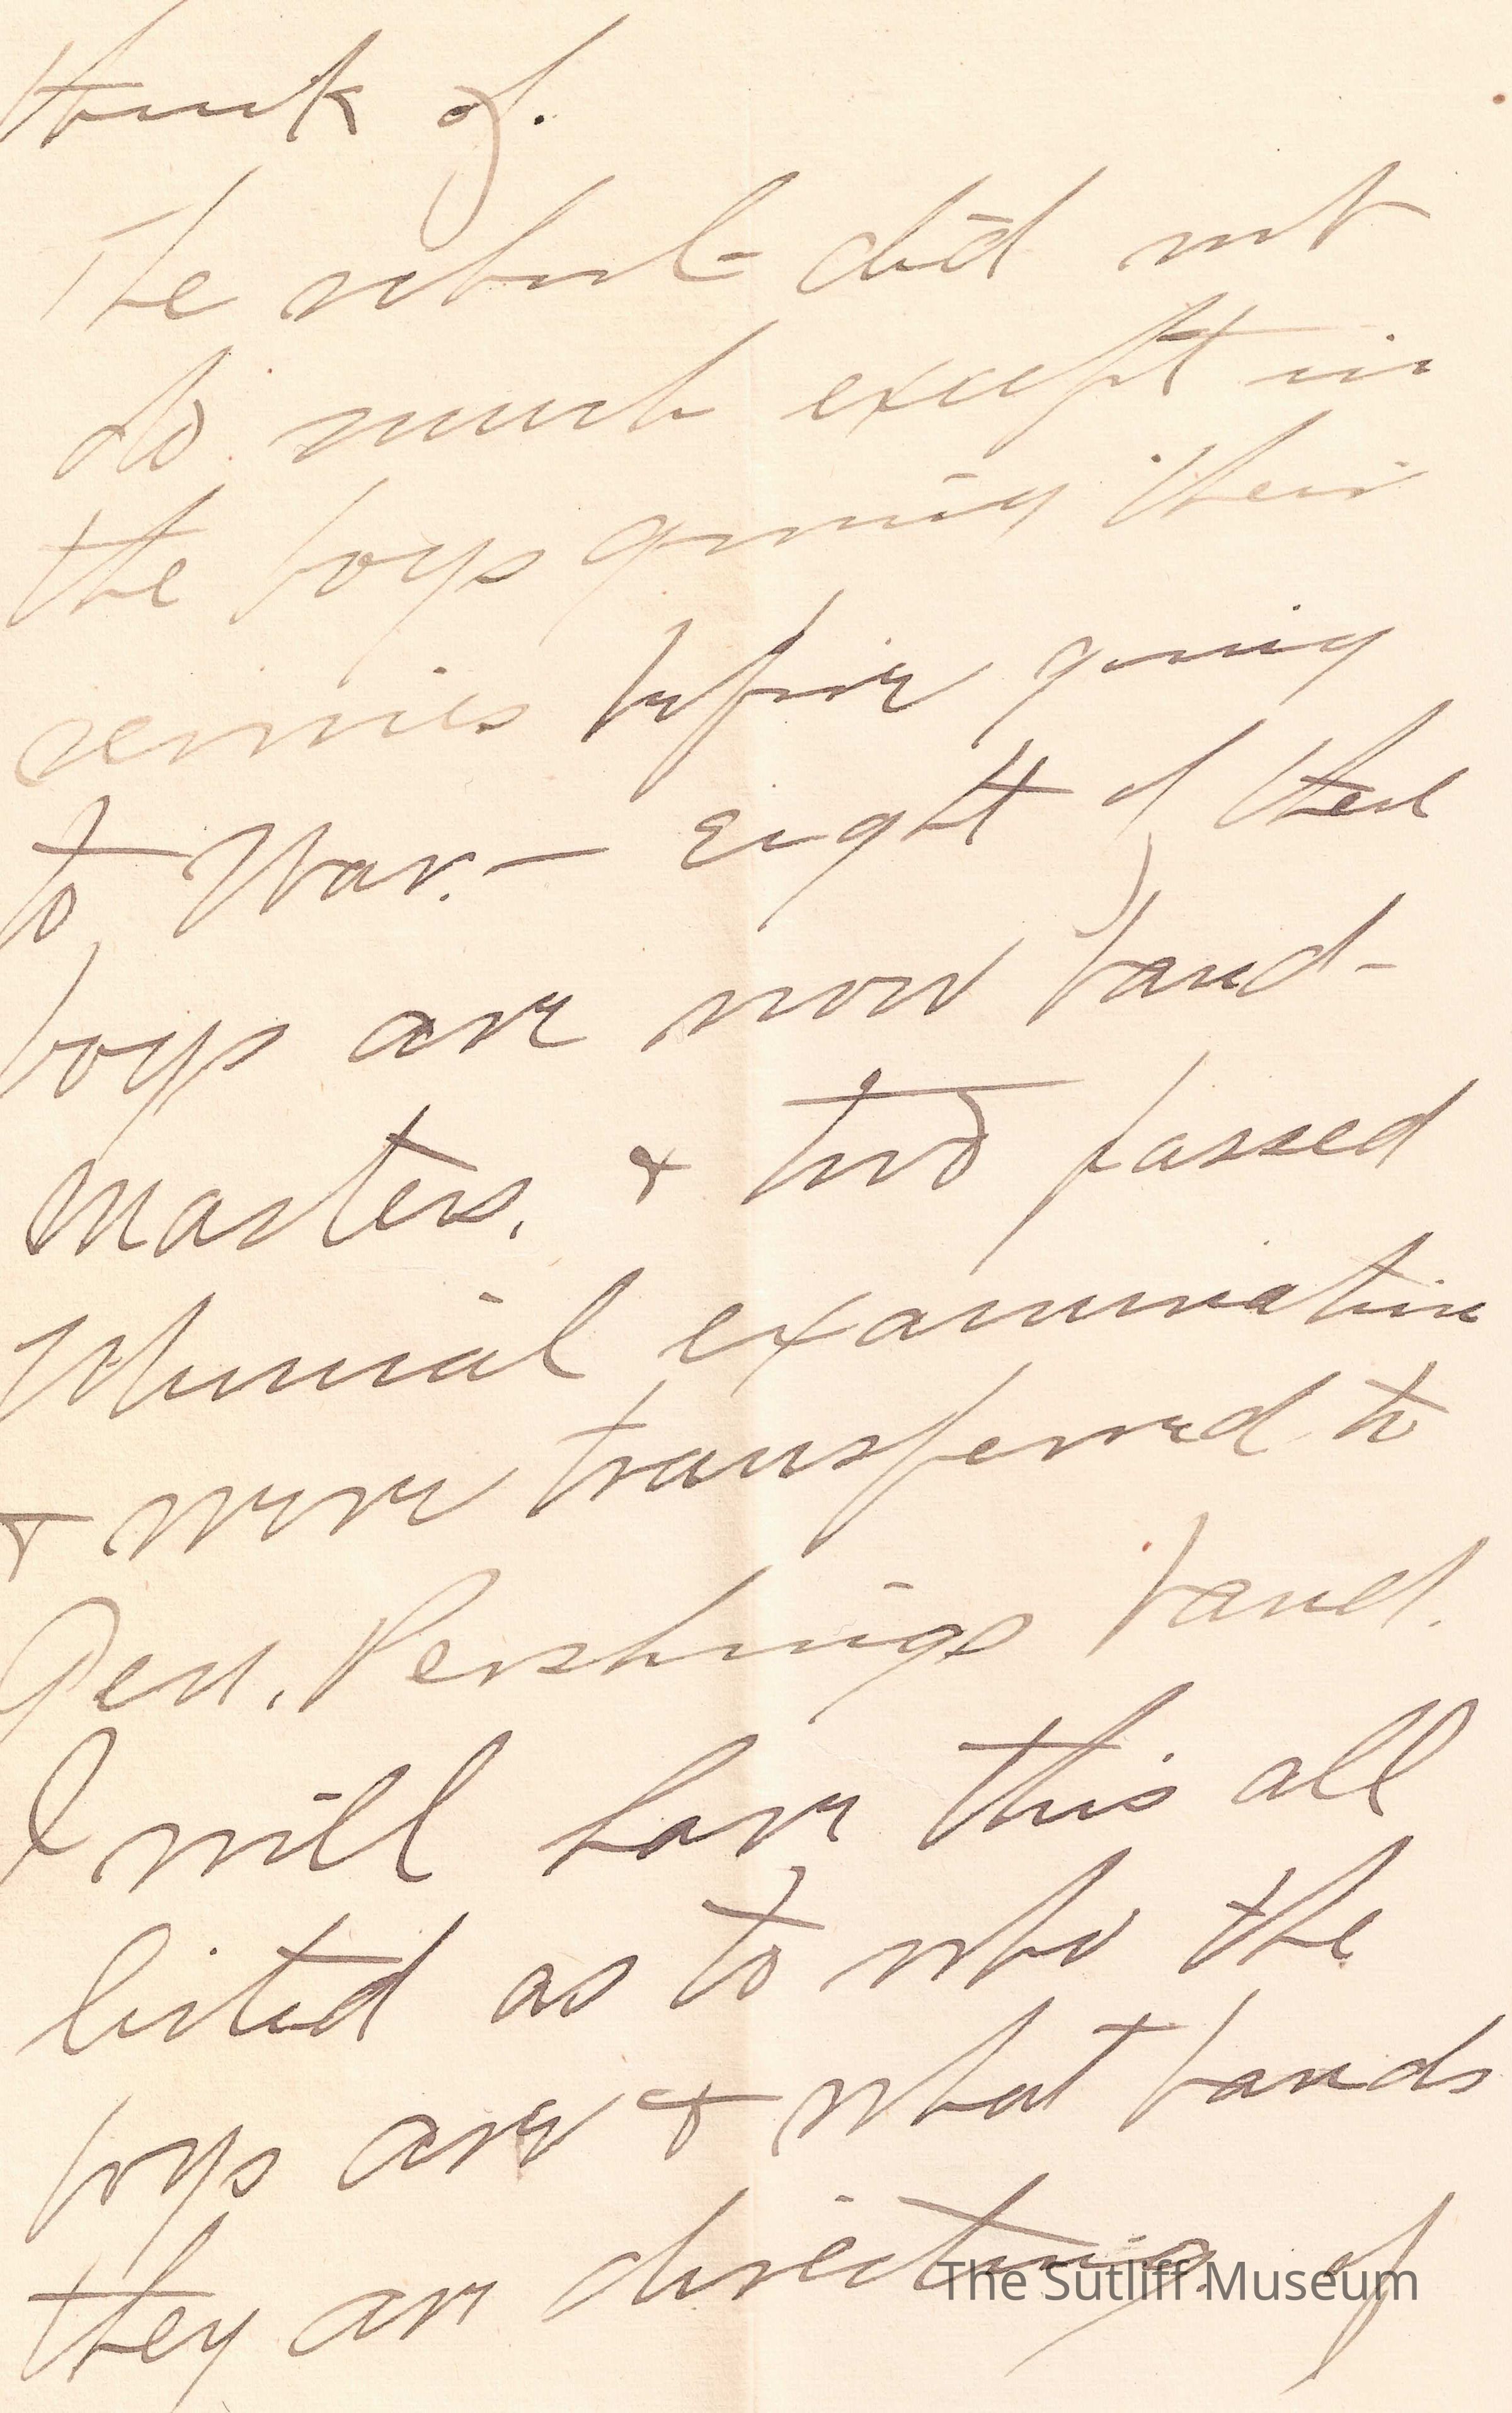 think of.
The school did not
do much except in
the boys giving their
services before going
to War. — Eight of these
boys are now band-
masters, & two passed
Musical examination
& were transferred to
Gen. Pershings band.
I will have this all
listed as to who the
boys are & what bands
they are directing. of
The Sutliff Museum